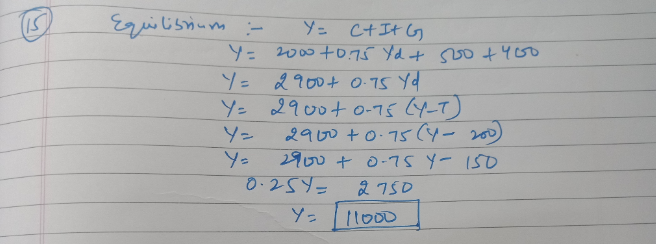 (15) Equilibrium :- Y = C+I+G
Y = 2000 + 0.75 Yd + 500 + 400
Y = 2900 + 0.75 Yd
Y = 2900 + 0.75 (Y-T)
Y = 2900 + 0.75 (Y - 200)
Y = 2900 + 0.75 Y - 150
0.25Y = 2750
Y = 11000